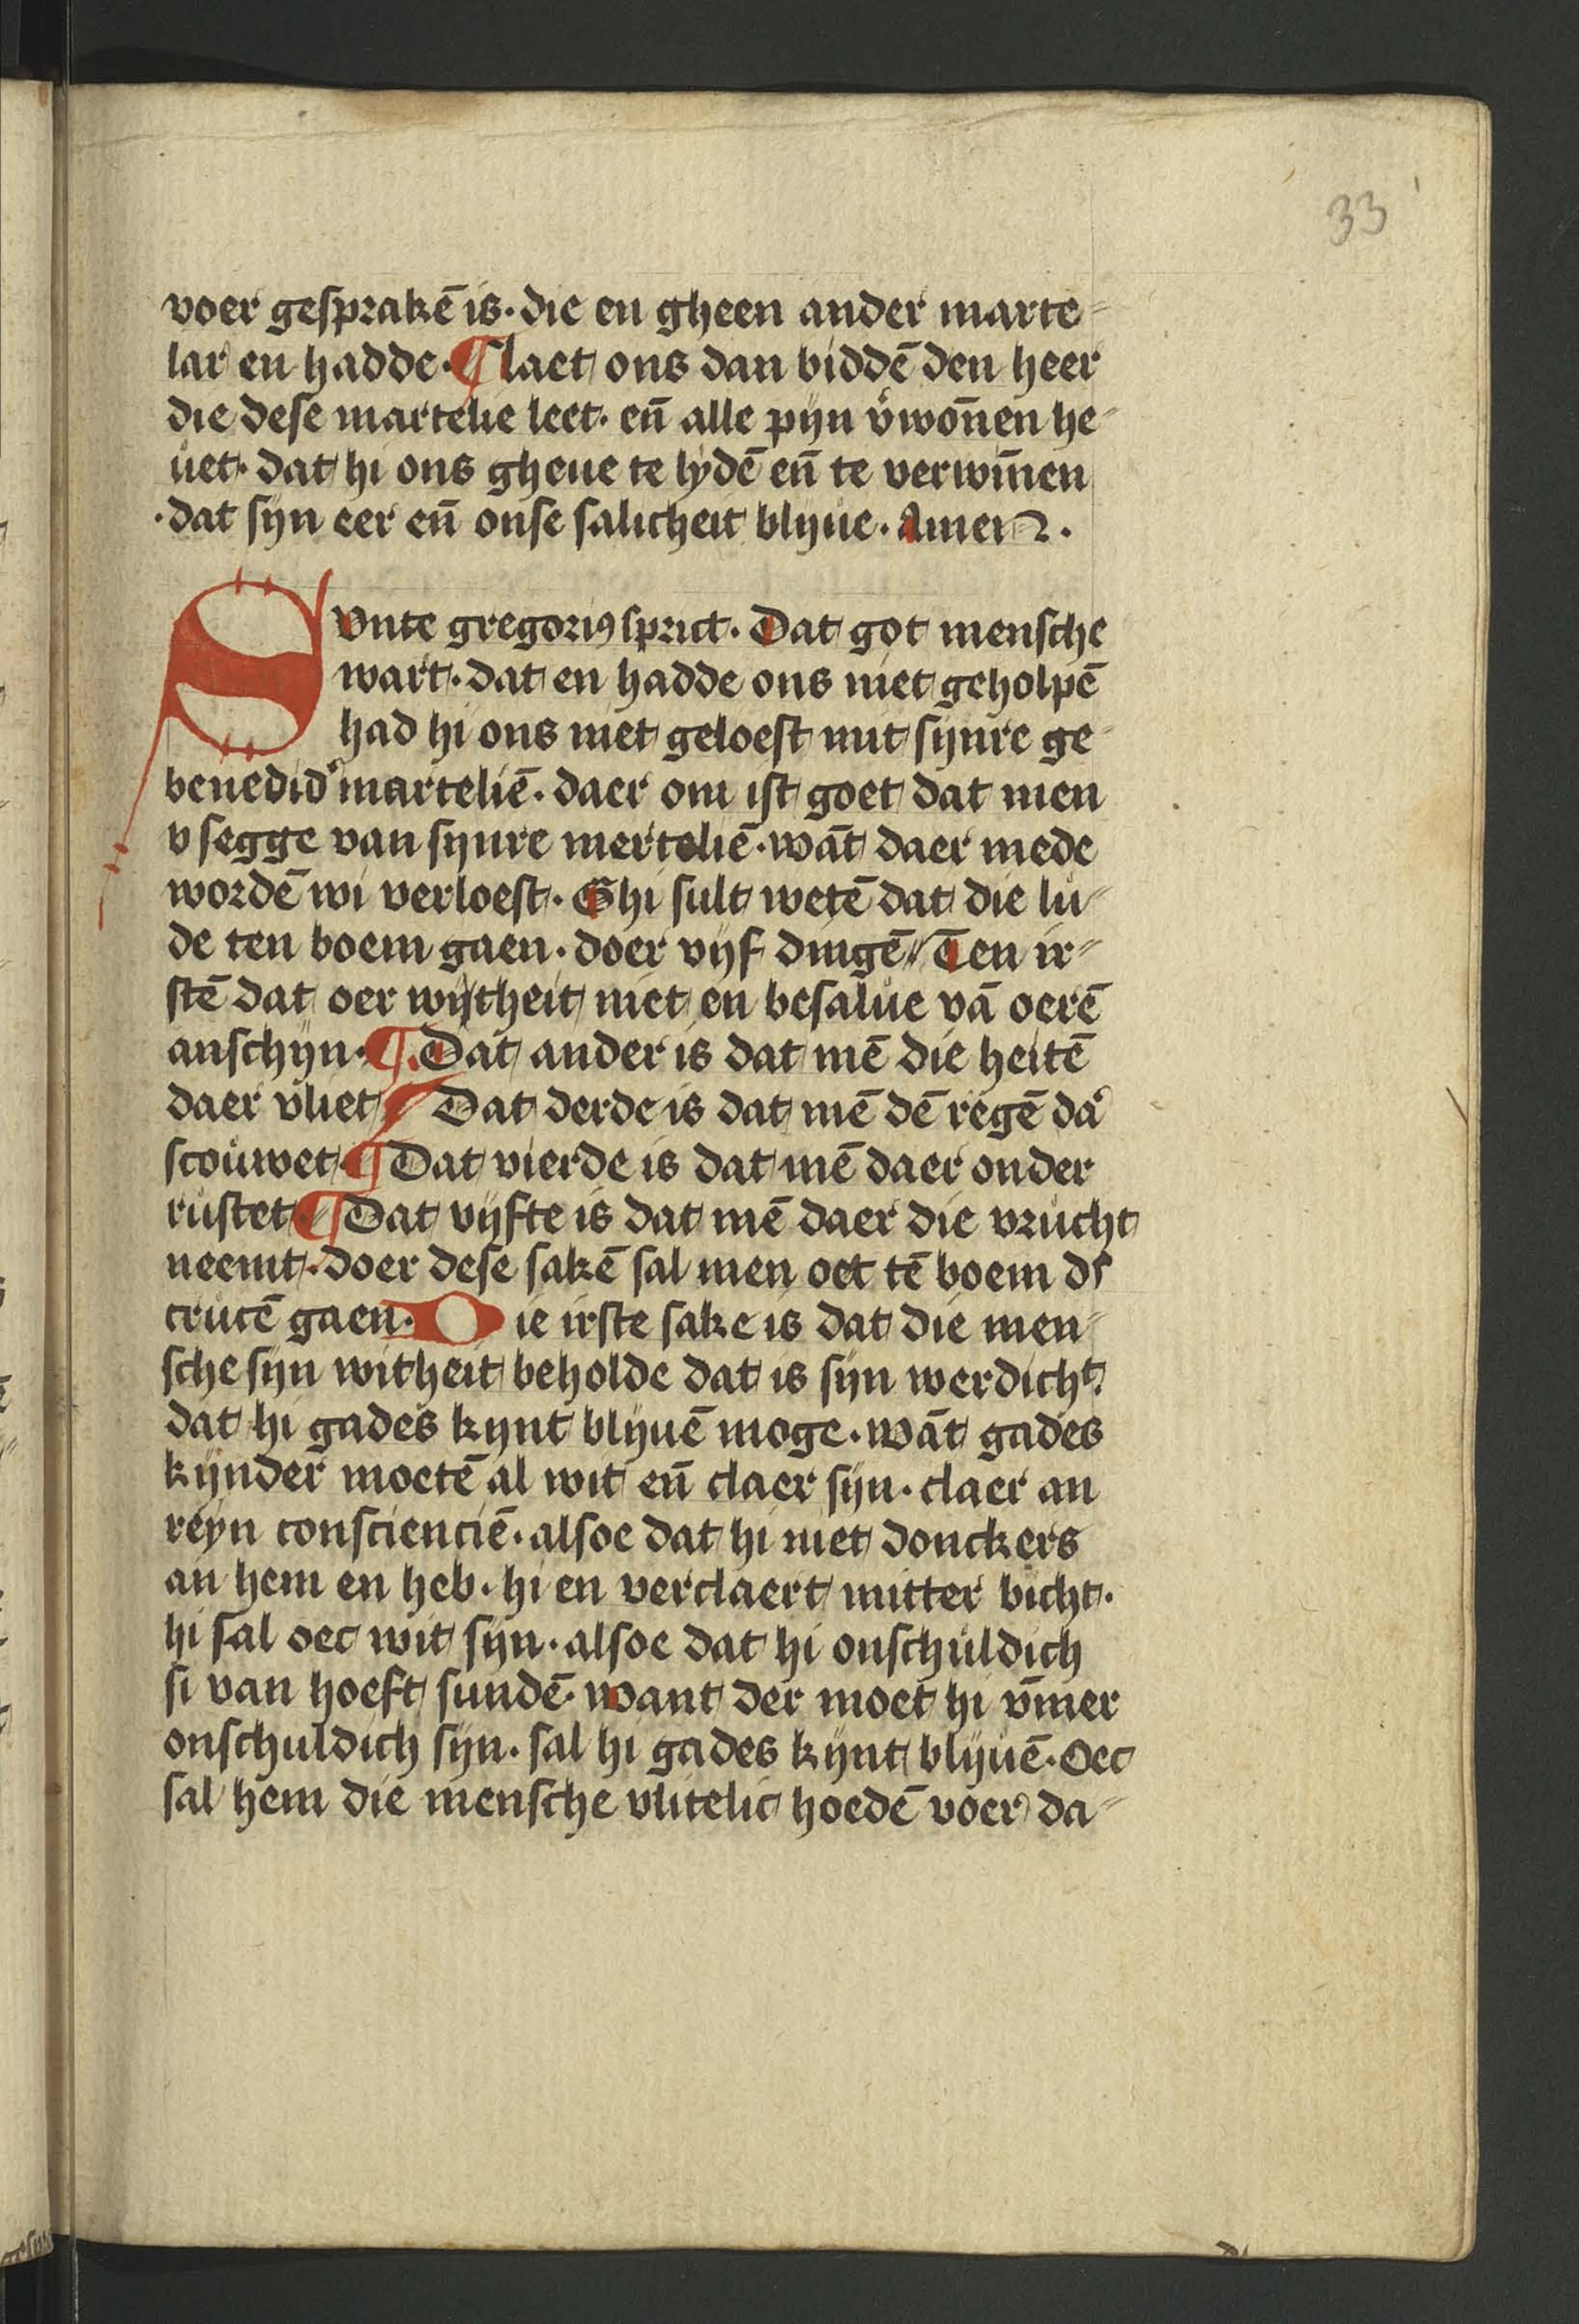 33
voer gesprakē is · die en gheen ander marte⸗
lar en hadde · ¶ laet ons dan biddē den heer
die dese martelie leet · en̄ alle pijn v̓won̄en he⸗
uet · dat hi ons gheue te lydē en̄ te verwin̄en
· dat sijn eer en̄ onse salicheit blijue · Amen .
Svnte gregoriꝰ sprict · Dat got mensche
wart · dat en hadde ons niet geholpē
had hi ons niet geloest mit sijnre ge⸗
benedid̓ marteliē · daer om ist goet dat men
v segge van sijnre merteliē · wāt daer mede
wordē wi verloest · Ghi sult wetē dat die lu⸗
de ten boem gaen · doer vijf dingē Ten ir⸗
stē dat oer wijtheit niet en besalue vā oerē
anschijn · ¶ Dat ander is dat mē die heitē
daer vliet ¶ Dat derde is dat mē dē regē da̓
scouwet ¶ Dat vierde is dat mē daer onder
rustet ¶ Dat vijfte is dat mē daer die vrucht
neemt · doer dese sakē sal men oec tē boem ds
crucē gaen · Die irste sake is dat die men⸗
sche sijn witheit beholde dat is sijn werdicht̓
dat hi gades kijnt blijuē moge · wāt gades
kijnder moetē al wit en̄ claer sijn · claer an
reyn consciencië · alsoe dat hi niet donckers
an hem en heb · hi en verclaert mitter bicht ·
hi sal oec wit sijn · alsoe dat hi onschuldich
si van hoeft sundē · want der moet hi v̄mer
onschuldich sijn · sal hi gades kijnt blijuē · Oec
sal hem die mensche vlitelic hoedē voer da⸗